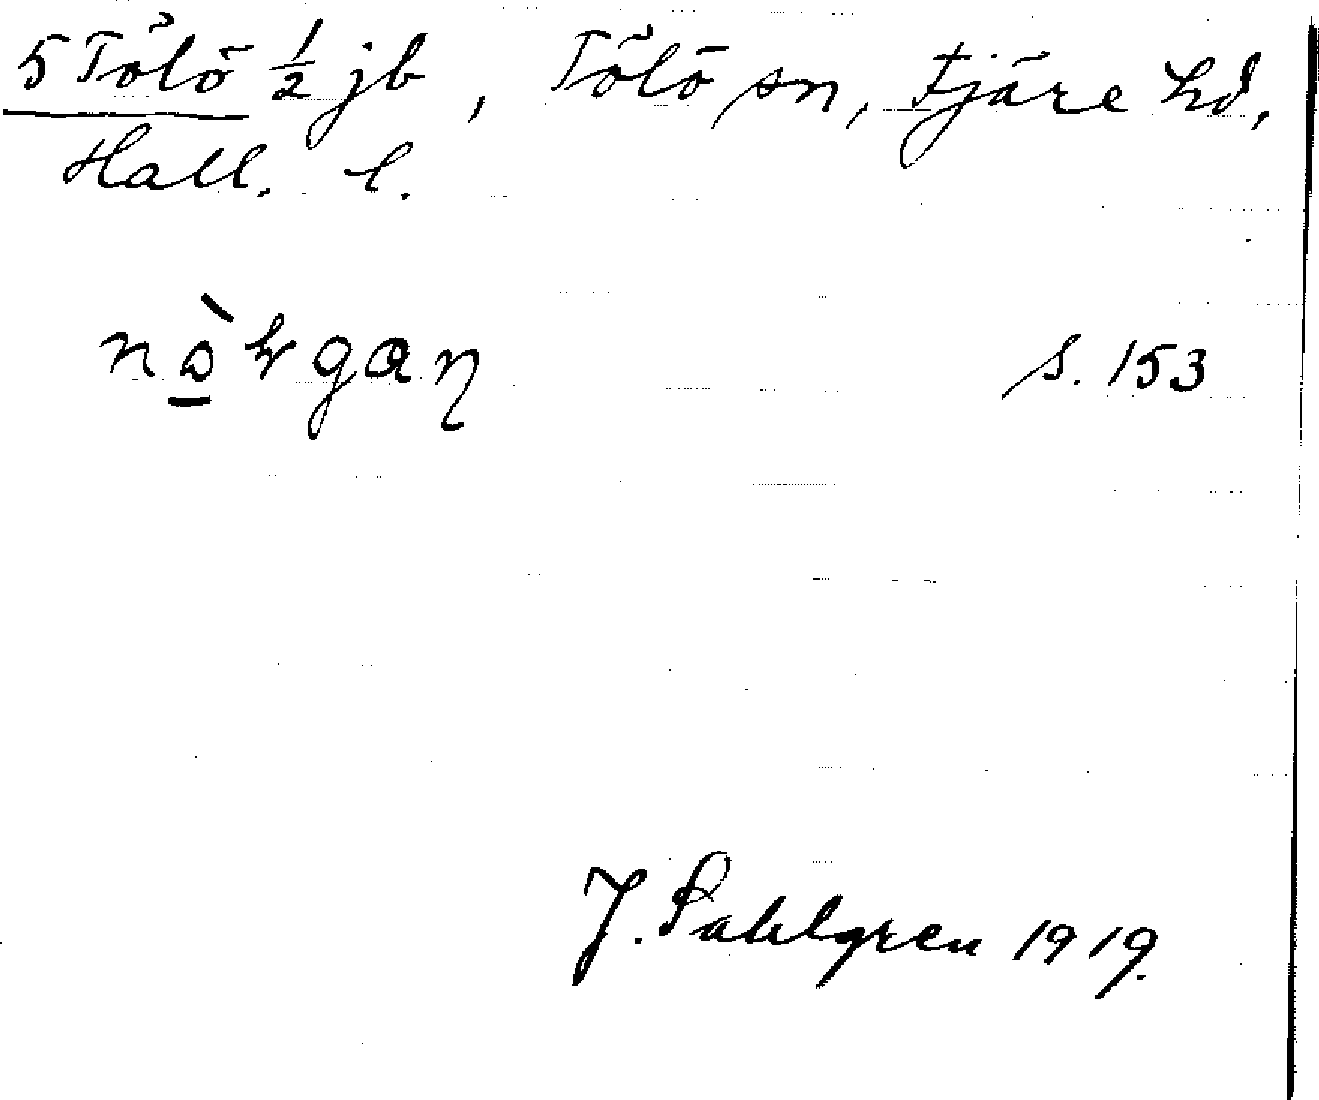 5 Tölö ½ jb, Tölö sn, Fjäre hd,
Hall. l.
s. 153
J. Sahlgren 1919.